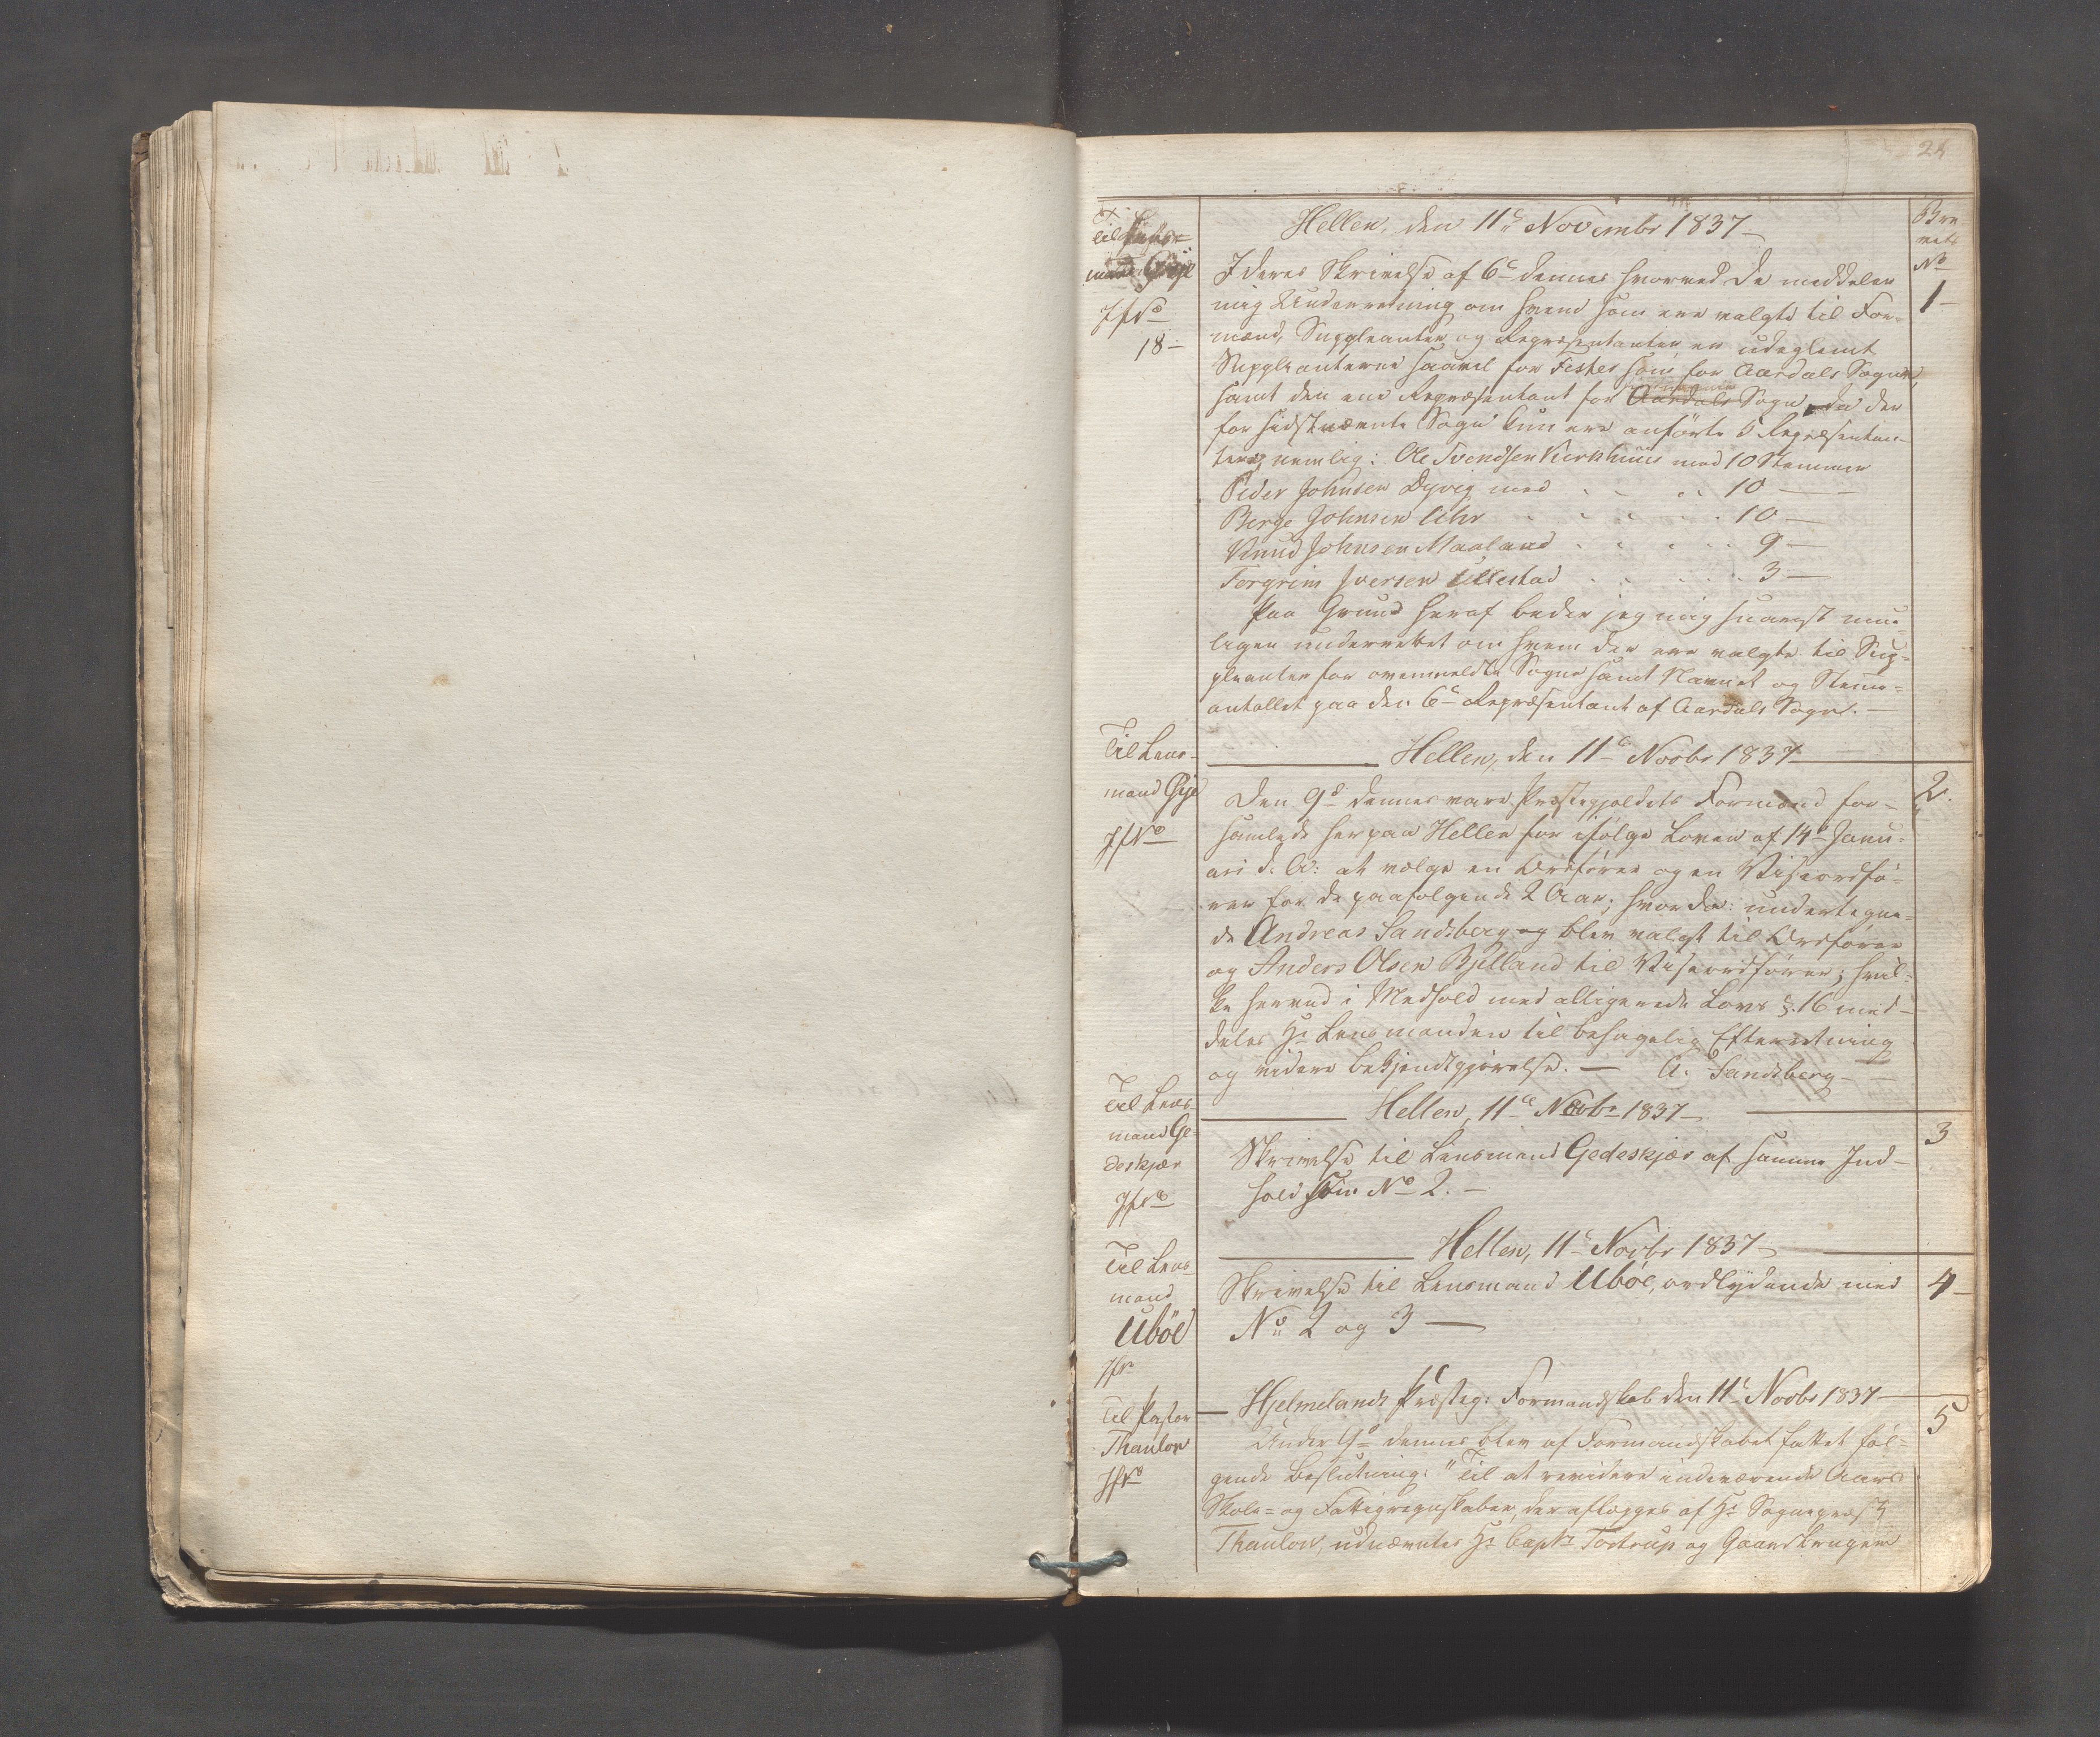 24
Bre
vets
No
Til Lens-
mand Gøye
JfNo
18-
Hellen, den 11te Novembr 1837
1
I deres Skrivelse af 6te dennes hvorved De meddeler
mig Underretning om hvem som ere valgte til For-
mænd, Suppleanter og Repræsentanter er udeglemt
Suppleanterne saavel for Fister som for Aardals Sogne,
samt den ene Repræsentant for Aardals Sogn, da der
for sidstnævnte Sogn kun ere anførte 5 Repræsentan-
ter, nemlig: Ole Svendsen Kirkhuus med 10 Stemmer
Peder Johnsen Dyvig med 10 —
Berge Johnsen Uhr 10 —
Knud Johnsen Maaland 9 —
Torgrim Iversen Ullestad 3 —
Paa Grund heraf beder jeg mig snarest mu-
ligen underrettet om hvem der ere valgte til Sup-
pleanter for ovenmeldte Sogne samt Navnet og Stemme-
antallet paa den 6te Repræsentant af Aardals Sogn. —
Til Lens-
mand Gøye
JfNo
Hellen, den 11te Novbr 1837
2.
Den 9de dennes vare Præstegjeldets Formænd for-
samlede her paa Hellen for ifølge Loven af 14de Janu-
ari d. A: at vælge en Ordfører og en Viseordfø-
rer for de paafølgende 2 Aar; hvor da: undertegne-
de Andreas Sandsberg og blev valgt til Ordfører
og Anders Olsen Bjelland til Viseordfører; hvil-
ke herved i Medhold med allegerede Lovs §. 16 med-
deles Hr Lensmanden til behagelig Efterretning
og videre bekjendtgjørelse. — A. Sandsberg —
Til Lens-
mand Ge-
deskjær
JfNo
Hellen, 11te Novbr 1837
3
Skrivelse til Lensmand Gedeskjær af samme Ind-
hold som No 2. —
Til Lens-
mand
Ubøe
JfNo
Hellen, 11te Novbr 1837
4
Skrivelse til Lensmand Ubøe, ordlydende med
No 2 og 3 —
Til Pastor
Thaulow
JfNo
Hjelmelands Præsteg: Formandskab den 11te Novbr 1837
5
Under 9de dennes blev af Formandskabet fattet føl-
gende Beslutning: "Til at revidere indeværende Aars
Skole- og Fattigregnskaber, der aflægges af Hr Sogneprest
Thaulow, udnævntes Hr Capt: Tostrup og Gaardbruger